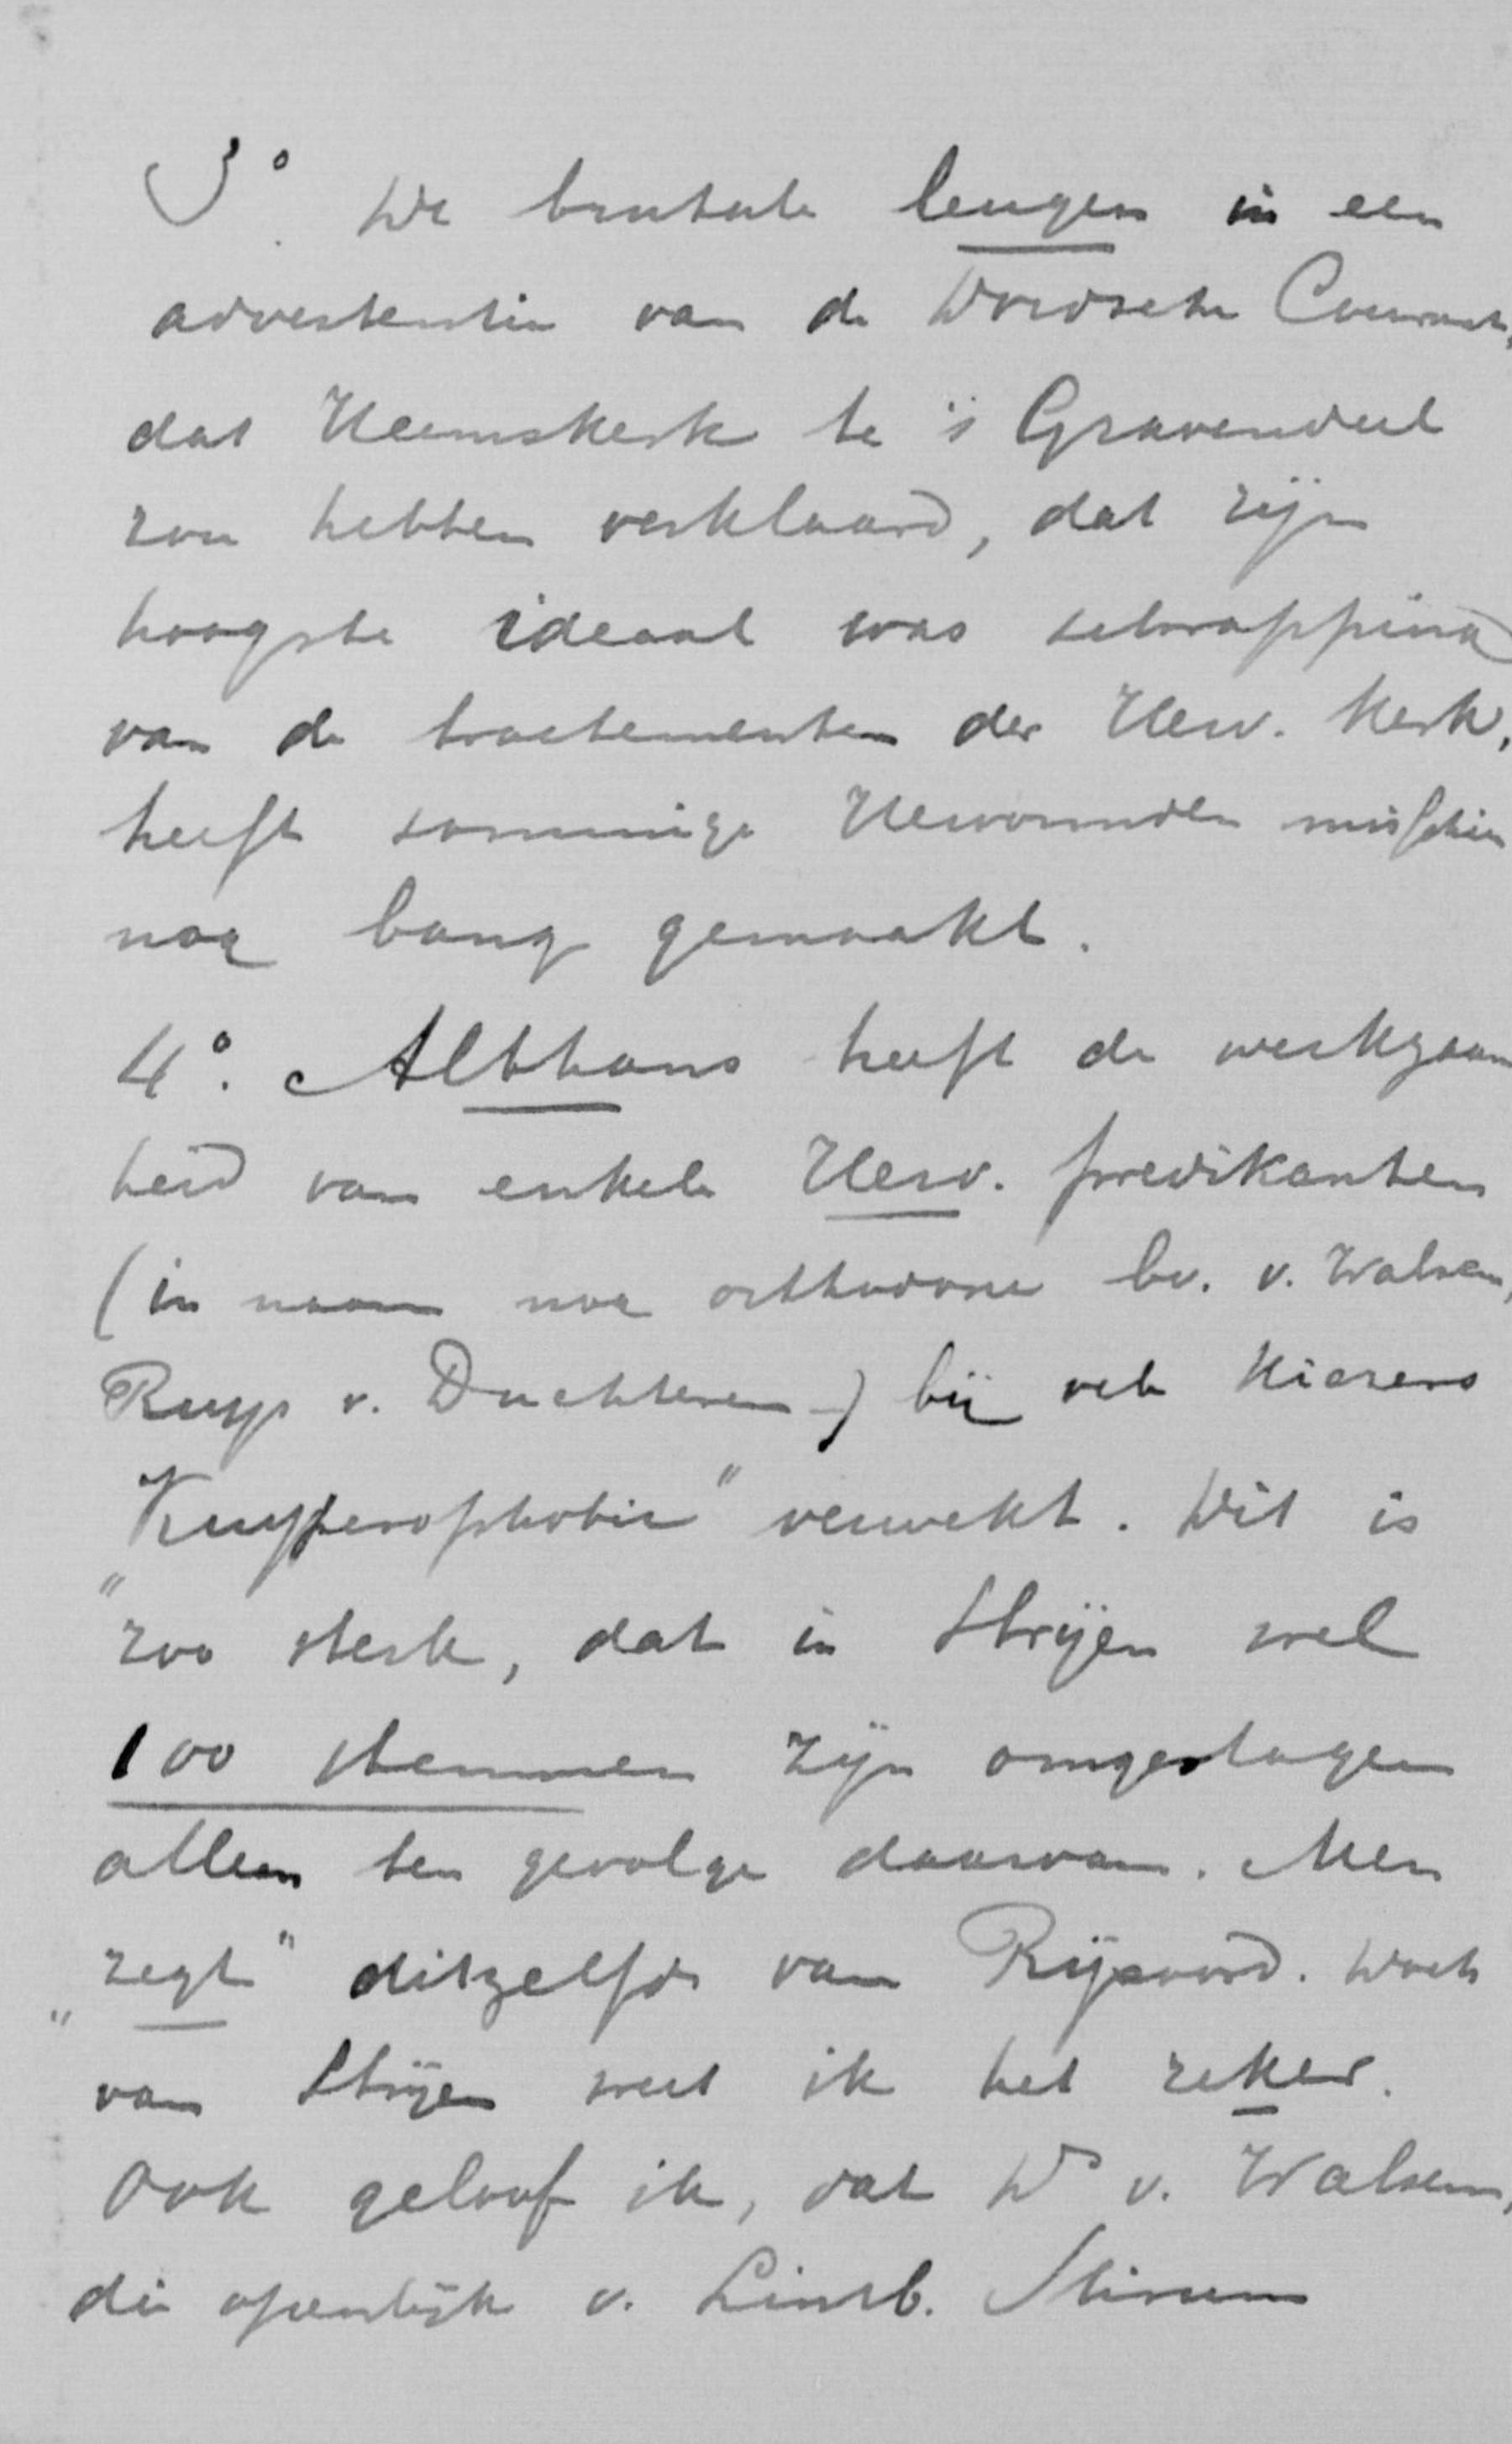 3° De brutale leugen in een
advertentie van de Dordsche Courant,
dat Heemskerk te 's Gravendeel
zou hebben verklaard, dat zijn
hoogste ideaal was schrapping
van de tractementen der Herv. Kerk,
heeft sommige Hervormden misschien
nog bang gemaakt.
4°. Althans heeft de werkzaam
heid van enkele Herv. predikanten
(in naam nog orthodoxe bv. v. Walsem,
Ruys v. Duchteren –) bij vele kiezers
"Kuyperophobie" verwekt. Dit is
zoo sterk, dat in Strijen wel
100 stemmen zijn omgeslagen
alleen ten gevolge daarvan. Men
"zegt" ditzelfde van Rijsoord. Doch
van Strijen weet ik het zeker.
Ook geloof ik, dat Ds v. Walsem,
die openlijk v. Limb. Stirum